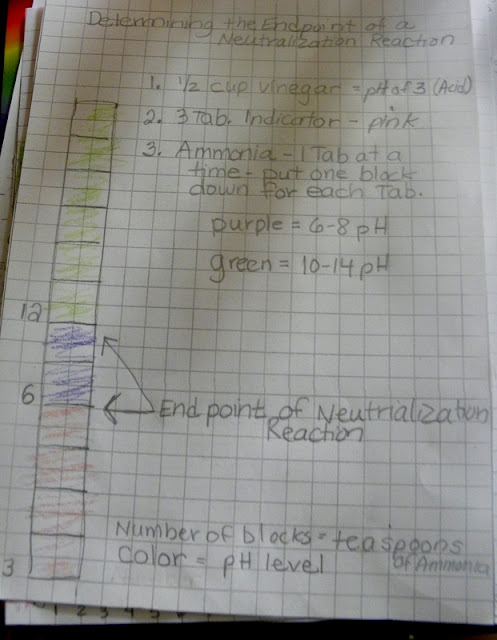 Determining the Endpoint of a
Neutralization Reaction
1. 1/2 cup vinegar = pH of 3 (Acid)
2. 3 Tab. Indicator - pink
3. Ammonia - 1 Tab at a
time - put one block
down for each Tab.
purple = 6-8 pH
green = 10-14 pH
12
6
Endpoint of Neutrialization
Reaction
Number of blocks = teaspoons
of Ammonia
Color = pH level
3
1 2 3 4 5 6